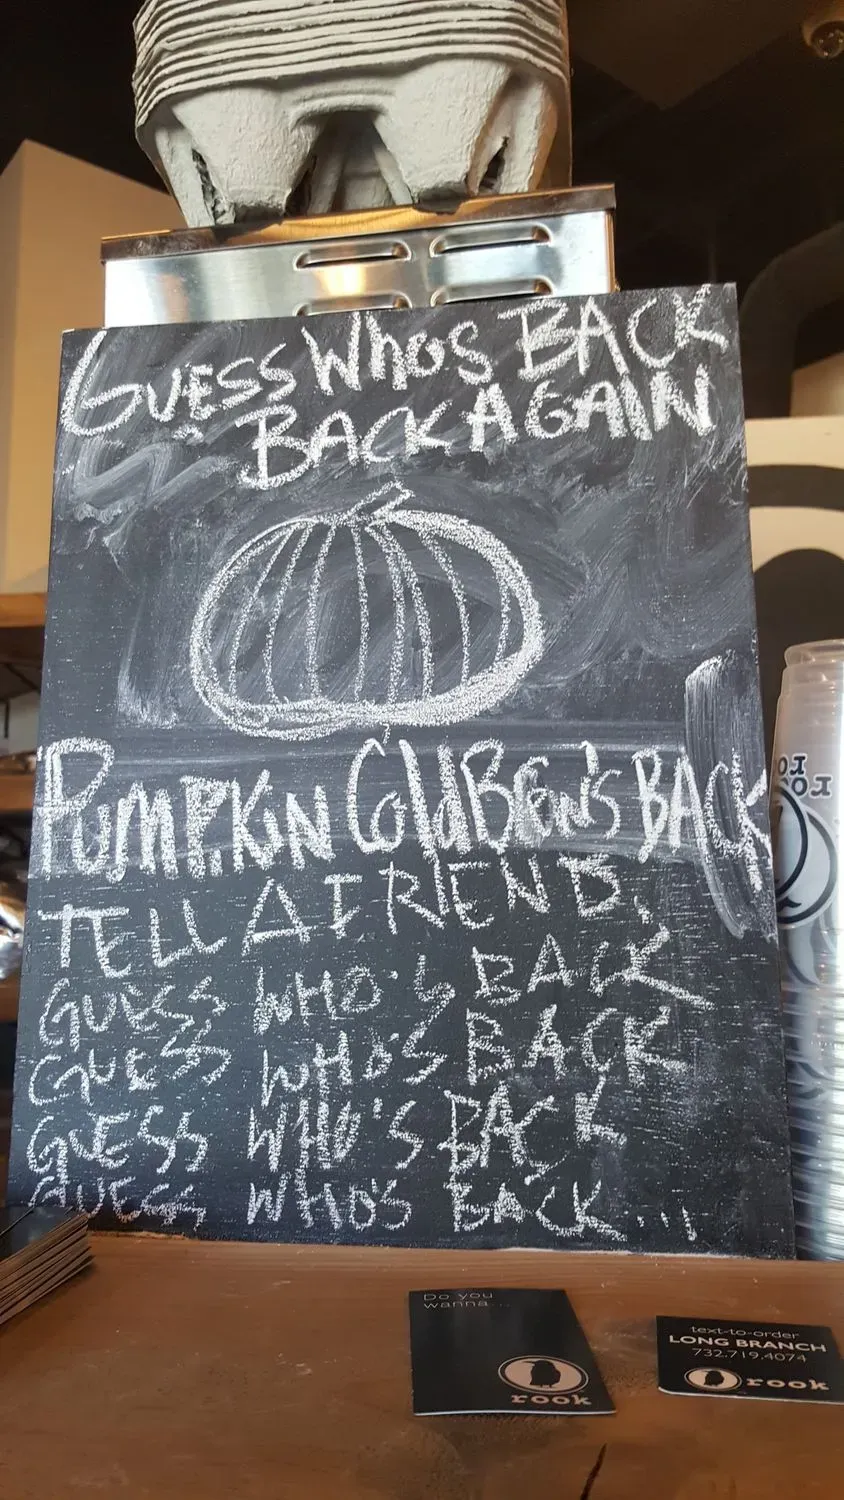 GUESS WhOS BACK
BACK AGAIN
PUMPKIN COldBREW'S BACK
TELL A FRIEND.
GUESS WHO'S BACK
GUESS WHO'S BACK
GUESS WHO'S BACK
GUESS WHO'S BACK...
Do you
wanna...
rook
text-to-order
LONG BRANCH
732.719.4074
rook